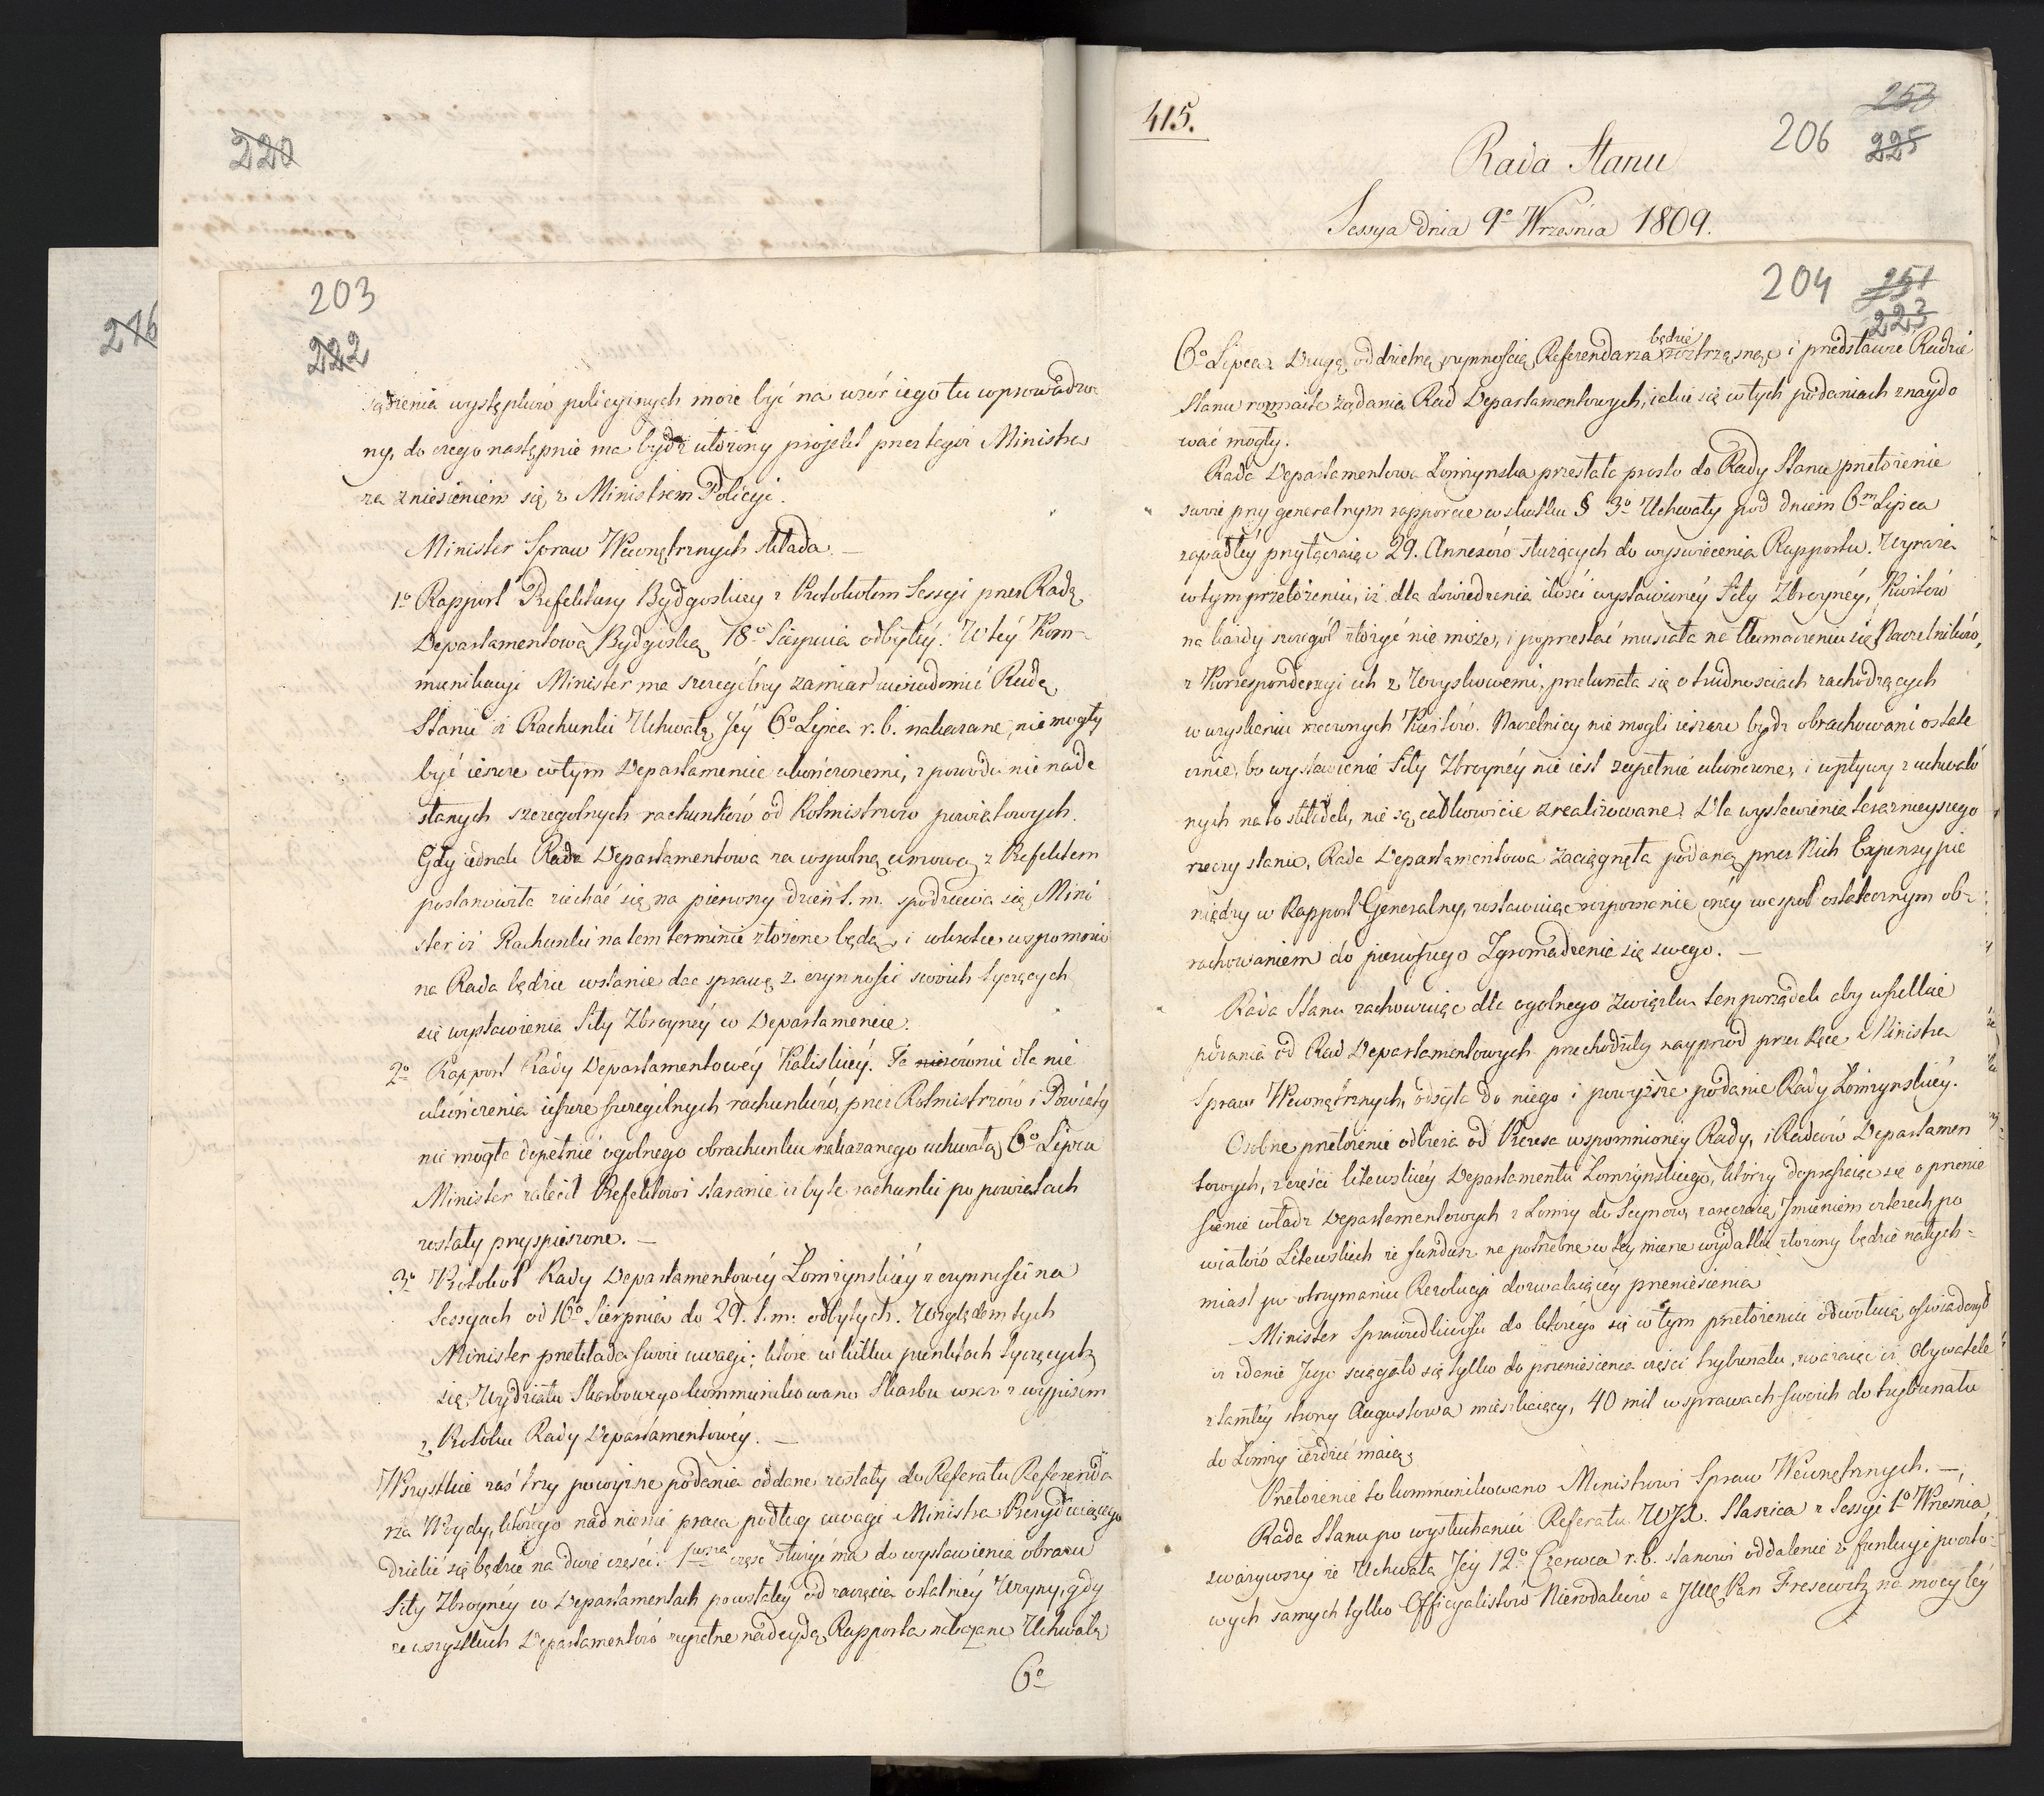 220
216
415.
206
253
225
Rada Stanu
Sessya dnia 9º Września 1809.
203
222
sądzenia występków policyjnych może być na wzór iego tu wprowadzo
ny, do czego następnie ma bydź ułożony projekt przez tegoż Ministra
za zniesieniem się z Ministrem Policyi.
Minister Spraw Wewnętrznych składa. —
1º Rapport Prefektury Bydgoskiey z Protokołem Sessyi przez Radę
Departamentową Bydgoską 18º Sierpnia odbytéy. W téy Kom-
munikacyi Minister ma szczególny zamiar uwiadomić Radę
Stanu iż Rachunki Uchwałą Jéy 6º Lipca r. b. nakazane, nie mogły
być ieszcze w tym Departamencie ukończonemi, z powodu nie nade
słanych szczegolnych rachunków od Rotmistrzów powiatowych.
Gdy iednak Rada Departamentowa za wspulną umową z Prefektem
postanowiła ziechać się na pierwszy dzień t. m. spodziewa się Mini
ster iż Rachunki na tem terminie złożone będą, i wkrotce wspomnio
na Rada będzie w stanie dać sprawę z czynności swoich tyczących
się wystawienia Siły Zbroynéy w Departamencie.
2º Rapport Rady Departamentowéy Kaliskiéy. Ta równie dla nie
ukończenia ieszcze szczególnych rachunków, przez Rotmistrzów i Powiaty
nie mogła dopełnić ogolnego obrachunku nakazanego uchwałą 6º Lipca
Minister zalecił Prefektowi staranie iżby te rachunki po powiatach
zostały przyspieszone. —
3º Protokół Rady Departamentowéy Łomżyńskiéy z czynności na
Sessyach od 16º Sierpnia do 29. t. m. odbytych. Względem tych
Minister przekłada swoie uwagi; które w kilku punktach tyczących
się Wydziału Skarbowego kommunikowano Skarbu wraz z wypisem
z Protokołu Rady Departamentowéy. —
Wszystkie zaś trzy powyższe podania oddane zostały do Referatu Referenda
rza Woydy, którego nad niemi praca podług uwagi Ministra Prezyduiącego
dzielić się będzie na dwie części. 1wsza część służyć ma do wystawienia obrazu
Siły Zbroynéy w Departamentach powstałéy od zaczęcia ostatniéy Woyny, gdy
ze wszystkich Departamentów zupełne nadeydą Rapporta nakazane Uchwałą
6º
204
251
223
6º Lipca. Drugą oddzielną czynnością Referendarza będzie roztrząsnąć i przedstawić Radzie
Stanu rozmaite żądania Rad Departamentowych, iakie się w tych podaniach znaydo
wać mogły.
Rada Departamentowa Łomżyńska przesłała prosto do Rady Stanu przełożenie
swoie przy generalnym rapporcie w skutku § 3º Uchwały pod dniem 6m Lipca
zapadłéy przyłączaiąc 29. Annexów służących do wyswiecenia Rapportu. Wyraża
w tym przełożeniu, iż dla dowiedzenia ilości wystawionéy Siły Zbroynéy, Kwitów
na każdy szczegół złożyć nie może, i poprzestać musiała na tłumaczeniu się Naczelników,
z Korrespondencyi ich z Woyskowemi, przekonała się o trudnościach zachodzących
w uzyskaniu rzeczonych Kwitów. Naczelnicy nie mogli ieszcze bydź obrachowani ostate
cznie, bo wystawienie Siły Zbroynéy nie iest zupełnie ukończone, i wpływy z uchwalo
nych na to składek, nie są całkowicie zrealizowane. Dla wystawienia teraznieyszego
rzeczy stanu, Rada Departamentowa zaciągnęła podaną przez Nich Expensę pie
niędzy w Rapport Generalny, zostawuiąc rozpoznanie onéy wespół ostatecznym ob-
rachowaniem do pierwszego Zgromadzenia się swego. —
Rada Stanu zachowuiąc dla ogolnego związku ten porządek aby wszelkie
podania od Rad Departamentowych przechodziły nayprzod przez Ręce Ministra
Spraw Wewnętrznych, odsyła do niego i powyższe podanie Rady Łomżyńskiéy.
Osobne przełożenie odbiera od Prezesa wspomnionéy Rady, i Radców Departamen
towych, z części litewskiéy Departamentu Łomżyńskiego, którzy dopraszaiąc się o przenie
sienie władz Departamentowych z Łomży do Seynow, zaręczaią Imieniem czterech po
wiatów Litewskich że fundusz na potrzebne w téy mierze wydatki złożony będzie natych-
miast po otrzymaniu Rezolucyi dozwalaiącéy przeniesienia
— Minister Sprawiedliwości do którego się w tym przełożeniu odwołuią, oświadczył
iż zdanie Jego sciągało się tylko do przeniesienia części trybunału, uważaiąc iż Obywatele
z tamtéy strony Augustowa mieszkaiący, 40 mil w sprawach swoich do trybunału
do Łomży ieździć maią.
Przełożenie to kommunikowano Ministrowi Spraw Wewnętrznych. —
Rada Stanu po wysłuchaniu Referatu WJX. Staszica z Sessyi 1º Września
zważywszy że Uchwała Jéy 12º Czerwca r. b. stanowi oddalenie z funkcyi poczto-
wych samych tylko Officyalistów Nierodaków a JWę Pan Fresewitz na mocy téy